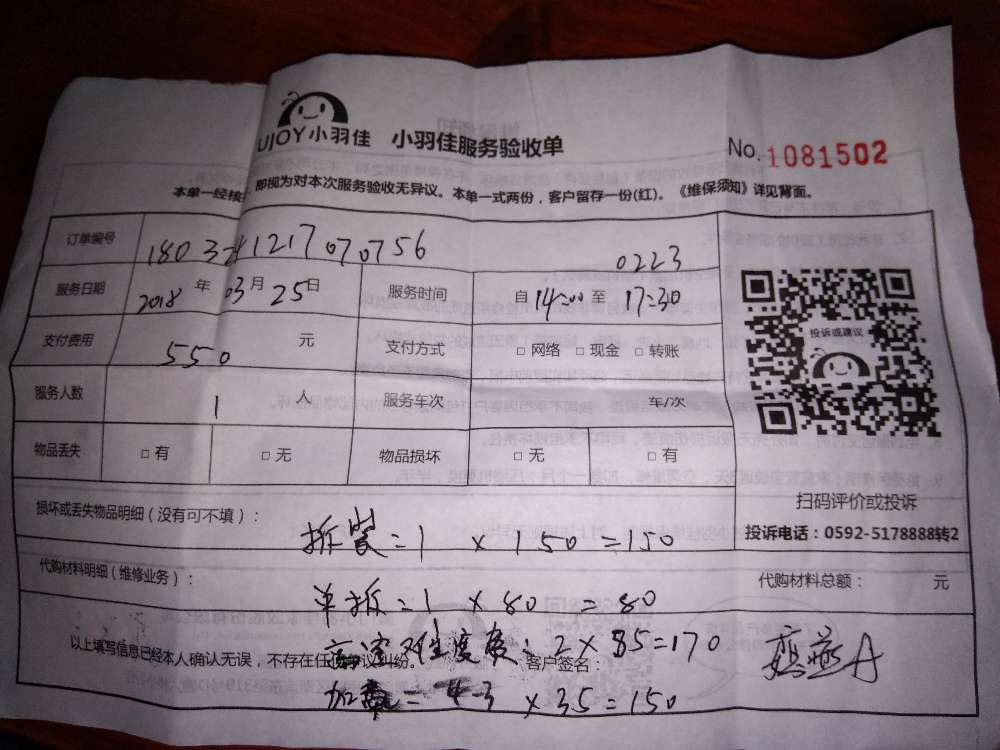 UJOY小羽佳 小羽佳服务验收单 No. 1081502
本单一经核 即视为对本次服务验收无异议。本单一式两份，客户留存一份(红)。《维保须知》详见背面。
订单编号 1803241217070756 0223
服务日期 2018年03月25日 服务时间 自14:00至17:30
支付费用 550 元 支付方式 □ 网络 □ 现金 □ 转账
投诉或建议
服务人数 1 人 服务车次 车/次
物品丢失 □ 有 □ 无 物品损坏 □ 无 □ 有
扫码评价或投诉
损坏或丢失物品明细（没有可不填）：
拆装=1 x 150=150
投诉电话：0592-5178888转2
代购材料明细（维修业务）： 代购材料总额： 元
单拆=1 x 80 =80
高空难度费：2x85=170
以上填写信息已经本人确认无误，不存在任 争议纠纷。 客户签名：
x35=150